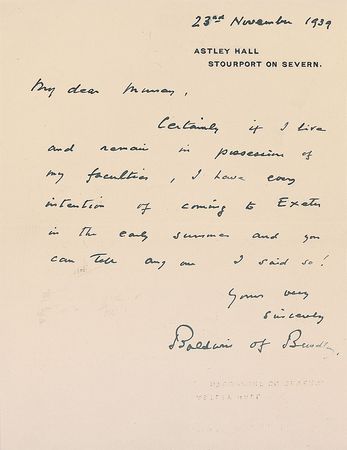 23rd November 1939
ASTLEY HALL
STOURPORT ON SEVERN.
My dear Murray,
Certainly if I live
and remain in possession of
my faculties, I have every
intention of coming to Exeter
in the early summer and you
can tell any one I said so!
Yours very
sincerely
Baldwin of Bewdley.